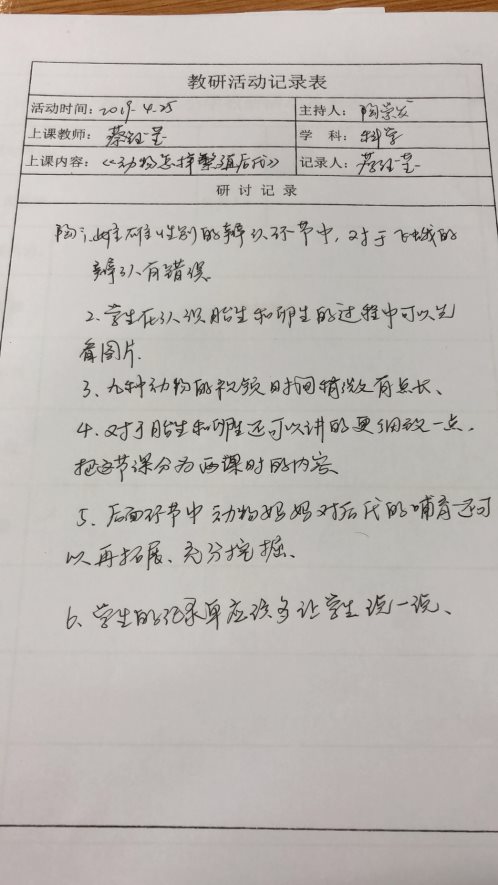 教研活动记录表
活动时间：2019.4.25 主持人：陶学发
上课教师：蔡钰莹 学 科：科学
上课内容：《动物怎样繁殖后代》 记录人：蔡钰莹
研讨记录
陶：1、雌雄性别的辨认环节中，对于飞蛾的
辨认有错误
2、学生在认识胎生和卵生的过程中可以先
看图片.
3、九种动物的视频时间稍微有点长、
4、对于胎生和卵生还可以讲的更细致一点.
把这节课分为两课时的内容
5、后面环节中动物妈妈对后代的哺育还可
以再拓展、充分挖掘、
6、学生的记录单应该多让学生说一说、